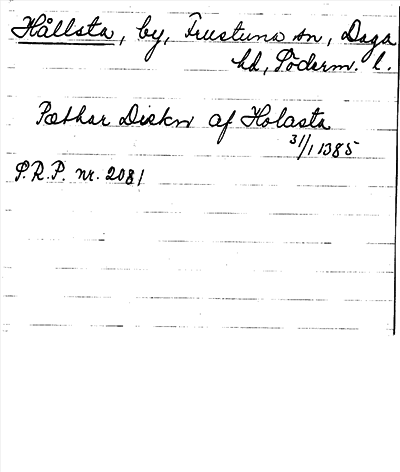 Hållsta, by, Frustuna sn, Daga
hd, Söderm. l.
Pæthar Diekn af Holasta
31/1 1385
P.R.P. nr. 2081